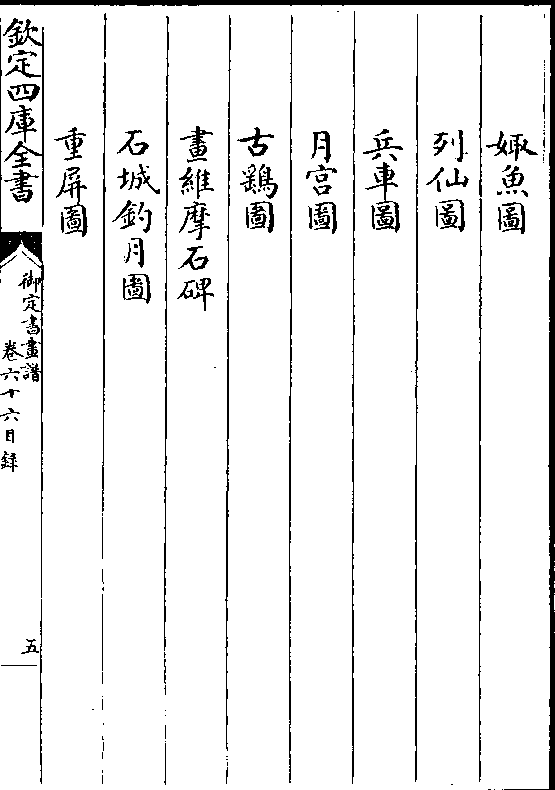 娵魚圖
列仙圖
兵車圖
月宮圖
古鷄圖
畫維摩石碑
石城釣月圖
重屏圖
欽定四庫全書
御定書畫譜
卷六十六目錄
五